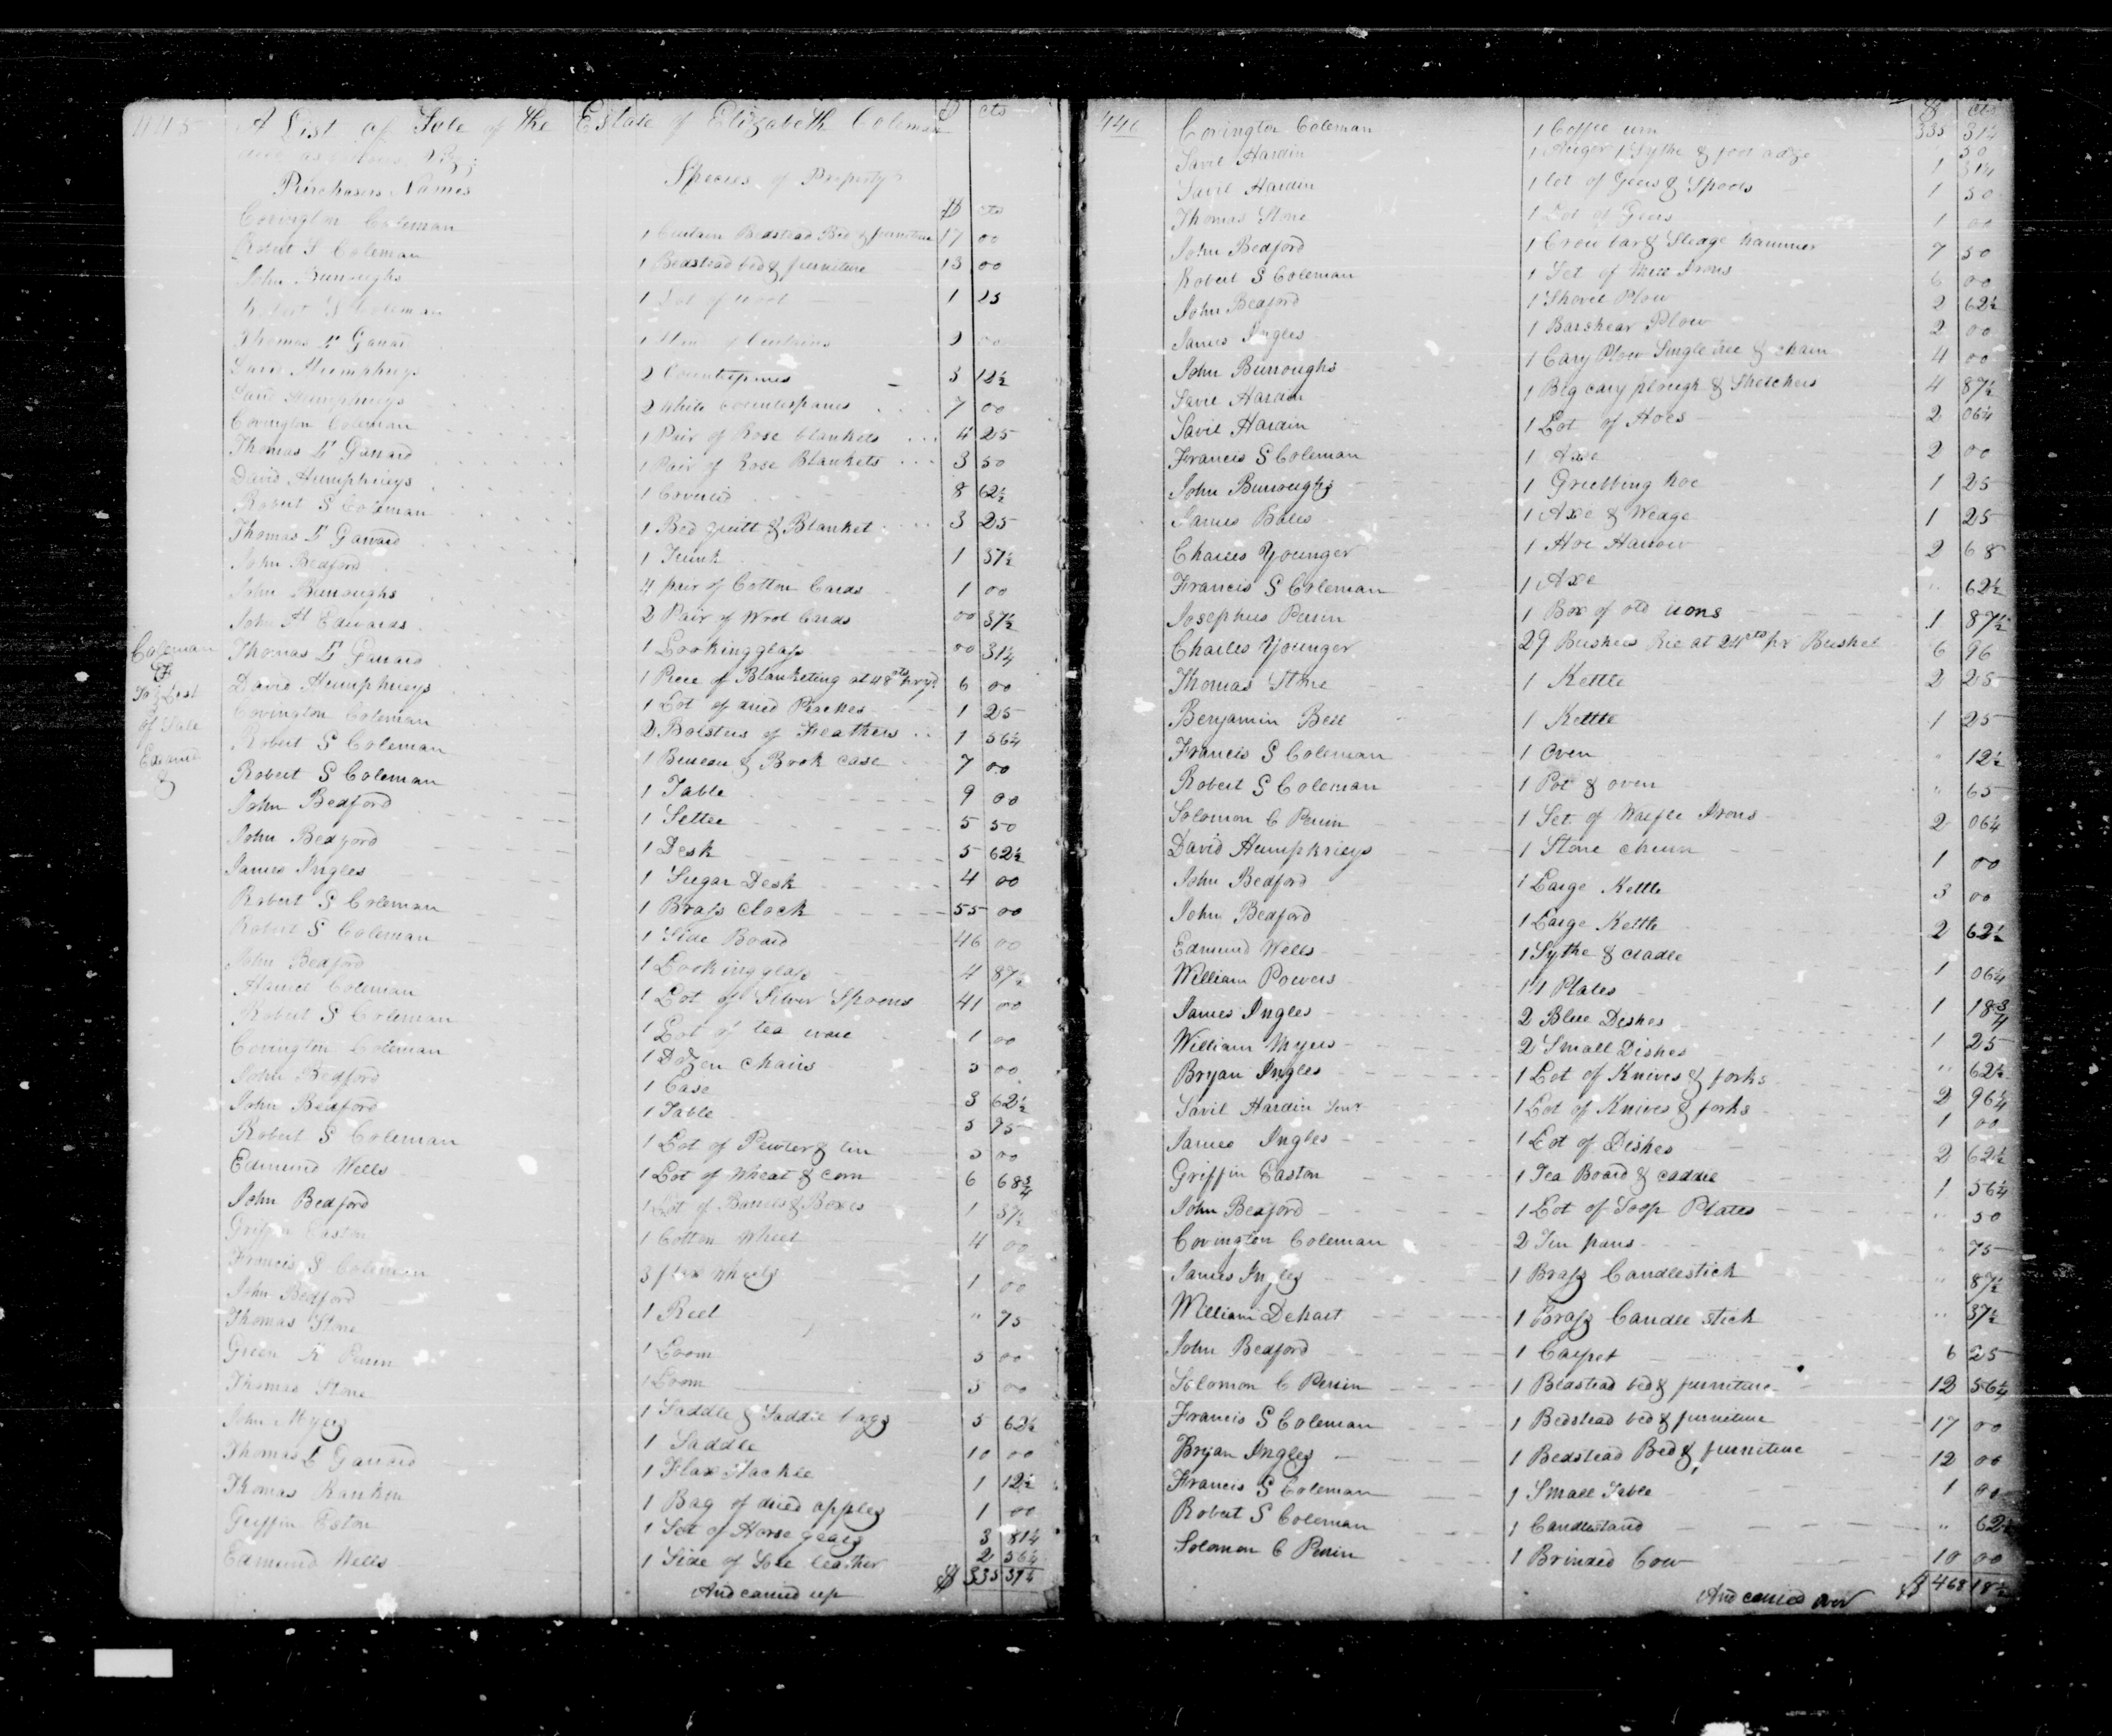 445 A List of Sale of the Estate of Elizabeth Coleman $ cts
are as follows Viz;
Purchasers Names Species of Property $ cts
Covington Coleman 1 Curtain Bedstead Bed & furniture 17 00
Robert S Coleman 1 Bedstead bed & furniture 13 00
John Burroughs 1 Lot of wool 1 25
Robert S Coleman 1 Stand of Curtains 2 00
Thomas L Garrard 2 Counterpanes 3 12½
David Humphreys 2 White Counterpanes 7 00
David Humphreys 1 Pair of Rose blankets 4 25
Covington Coleman 1 Pair of Rose Blankets 3 50
Thomas L Garrard 1 Coverlid 8 62½
David Humphreys 1 Bed quilt & Blanket 3 25
Robert S Coleman 1 Trunk 1 37½
Thomas L Garrard 4 pair of Cotton Cards 1 00
John Bedford 2 Pair of Wool Cards 00 37½
John Burroughs 1 Lookinglass 00 31¼
John H Edwards 1 Piece of Blanketing at 48 cts pr yd 6 00
Thomas L Garrard 1 Lot of dried Peaches 1 25
David Humphreys 2 Bolsters of Feathers 1 56¼
Covington Coleman 1 Bureau & Book case 7 00
Robert S Coleman 1 Table 9 00
Robert S Coleman 1 Settee 5 50
John Bedford 1 Desk 5 62½
John Bedford 1 Sugar Desk 4 00
James Ingles 1 Brass Clock 55 00
Robert S Coleman 1 Side Board 46 00
Robert S Coleman 1 Lookinglass 4 87½
John Bedford 1 Lot of Silver Spoons 41 00
Coleman 1 Lot of tea ware 1 00
Robert S Coleman 1 Dozen chairs 5 00
Covington Coleman 1 Case 3 62½
John Bedford 1 Table 5 95
John Bedford 1 Lot of Pewter & tin 5 00
Robert S Coleman 1 Lot of Wheat & corn 6 68¾
Edmund Wells 1 Lot of Barrels & Boxes 1 37½
John Bedford 1 Cotton Wheel 4 00
Griffin Easton 3 flax wheels 1 00
Francis S Coleman 1 Reel " 75
John Bedford 1 Loom 5 00
Thomas Stone 1 Loom 5 00
Green Perrin 1 Saddle & Saddle bags 5 62½
Thomas Stone 1 Saddle 10 00
John Myers 1 Flax Hackle 1 12½
Thomas L Garrard 1 Bag of dried apples 1 00
Thomas Rankin 1 Set of Horse gears 3 81¼
Griffin Eston 1 Side of Sole leather 2 56¼
Edmund Wells And carried up $ 335 31¼
Coleman
To List
of Sale
Examd
446 Covington Coleman 1 Coffee urn $ cts 335 31¼
Savil Hardin 1 Auger 1 Sythe & foot adze 50
Savil Hardin 1 lot of Gears & Spools 1 31¼
Thomas Stone 1 Lot of Gears 1 50
John Bedford 1 Crow bar & Sledge hammer 1 00
Robert S Coleman 1 Set of Mill Irons 7 50
John Bedford 1 Shovel Plow 6 00
James Ingles 1 Barshear Plow 2 62½
John Burroughs 1 Cary Plow Single tree & chain 2 00
Savil Hardin 1 Big cary plough & Stretchers 4 00
Savil Hardin 1 Lot of Hoes 4 87½
Francis S Coleman 1 Axe 2 06¼
John Burroughs 1 Grubbing hoe 2 00
James Bales 1 Axe & Wedge 1 25
Charles Younger 1 Hoe Harrow 1 25
Francis S Coleman 1 Axe 2 68
Josephus Perrin 1 Box of old irons " 62½
Charles Younger 29 Bushels Rie at 24 cts pr Bushel 1 87½
Thomas Stone 1 Kettle 6 96
Benjamin Bell 1 Kettle 2 25
Francis S Coleman 1 Oven 1 25
Robert S Coleman 1 Pot & oven " 12½
Solomon C Perrin 1 Set of Waffle Irons " 65
David Humphrieys 1 Stone churn 2 06¼
John Bedford 1 Large Kettle 1 00
John Bedford 1 Large Kettle 3 00
Edmund Wells 1 Sythe & cradle 2 62½
William Powers 11 Plates 1 06¼
James Ingles 2 Blue Dishes 1 18¾
William Myers 2 Small Dishes 1 25
Bryan Ingles 1 Lot of Knives & forks " 62½
Savil Hardin Senr 1 Lot of Knives & forks 2 96¼
James Ingles 1 Lot of Dishes 1 00
Griffin Easton 1 Tea Board & caddie 2 62½
John Bedford 1 Lot of Soop Plates 1 56¼
Covington Coleman 2 Tin pans " 50
James Ingles 1 Brass Candlestick " 75
William Dehart 1 Brass Candle stick " 87½
John Bedford 1 Carpet " 37½
Solomon C Perrin 1 Beastead bed & furniture 6 25
Francis S Coleman 1 Bedstead bed & furniture 12 56¼
Bryan Ingles 1 Bedstead Bed & furniture 17 00
Francis S Coleman 1 Small Table 12 00
Robert S Coleman 1 Candlestand 1 00
Solomon C Perrin 1 Brinded Cow " 62½
10 00
And carried over $ 468 18½